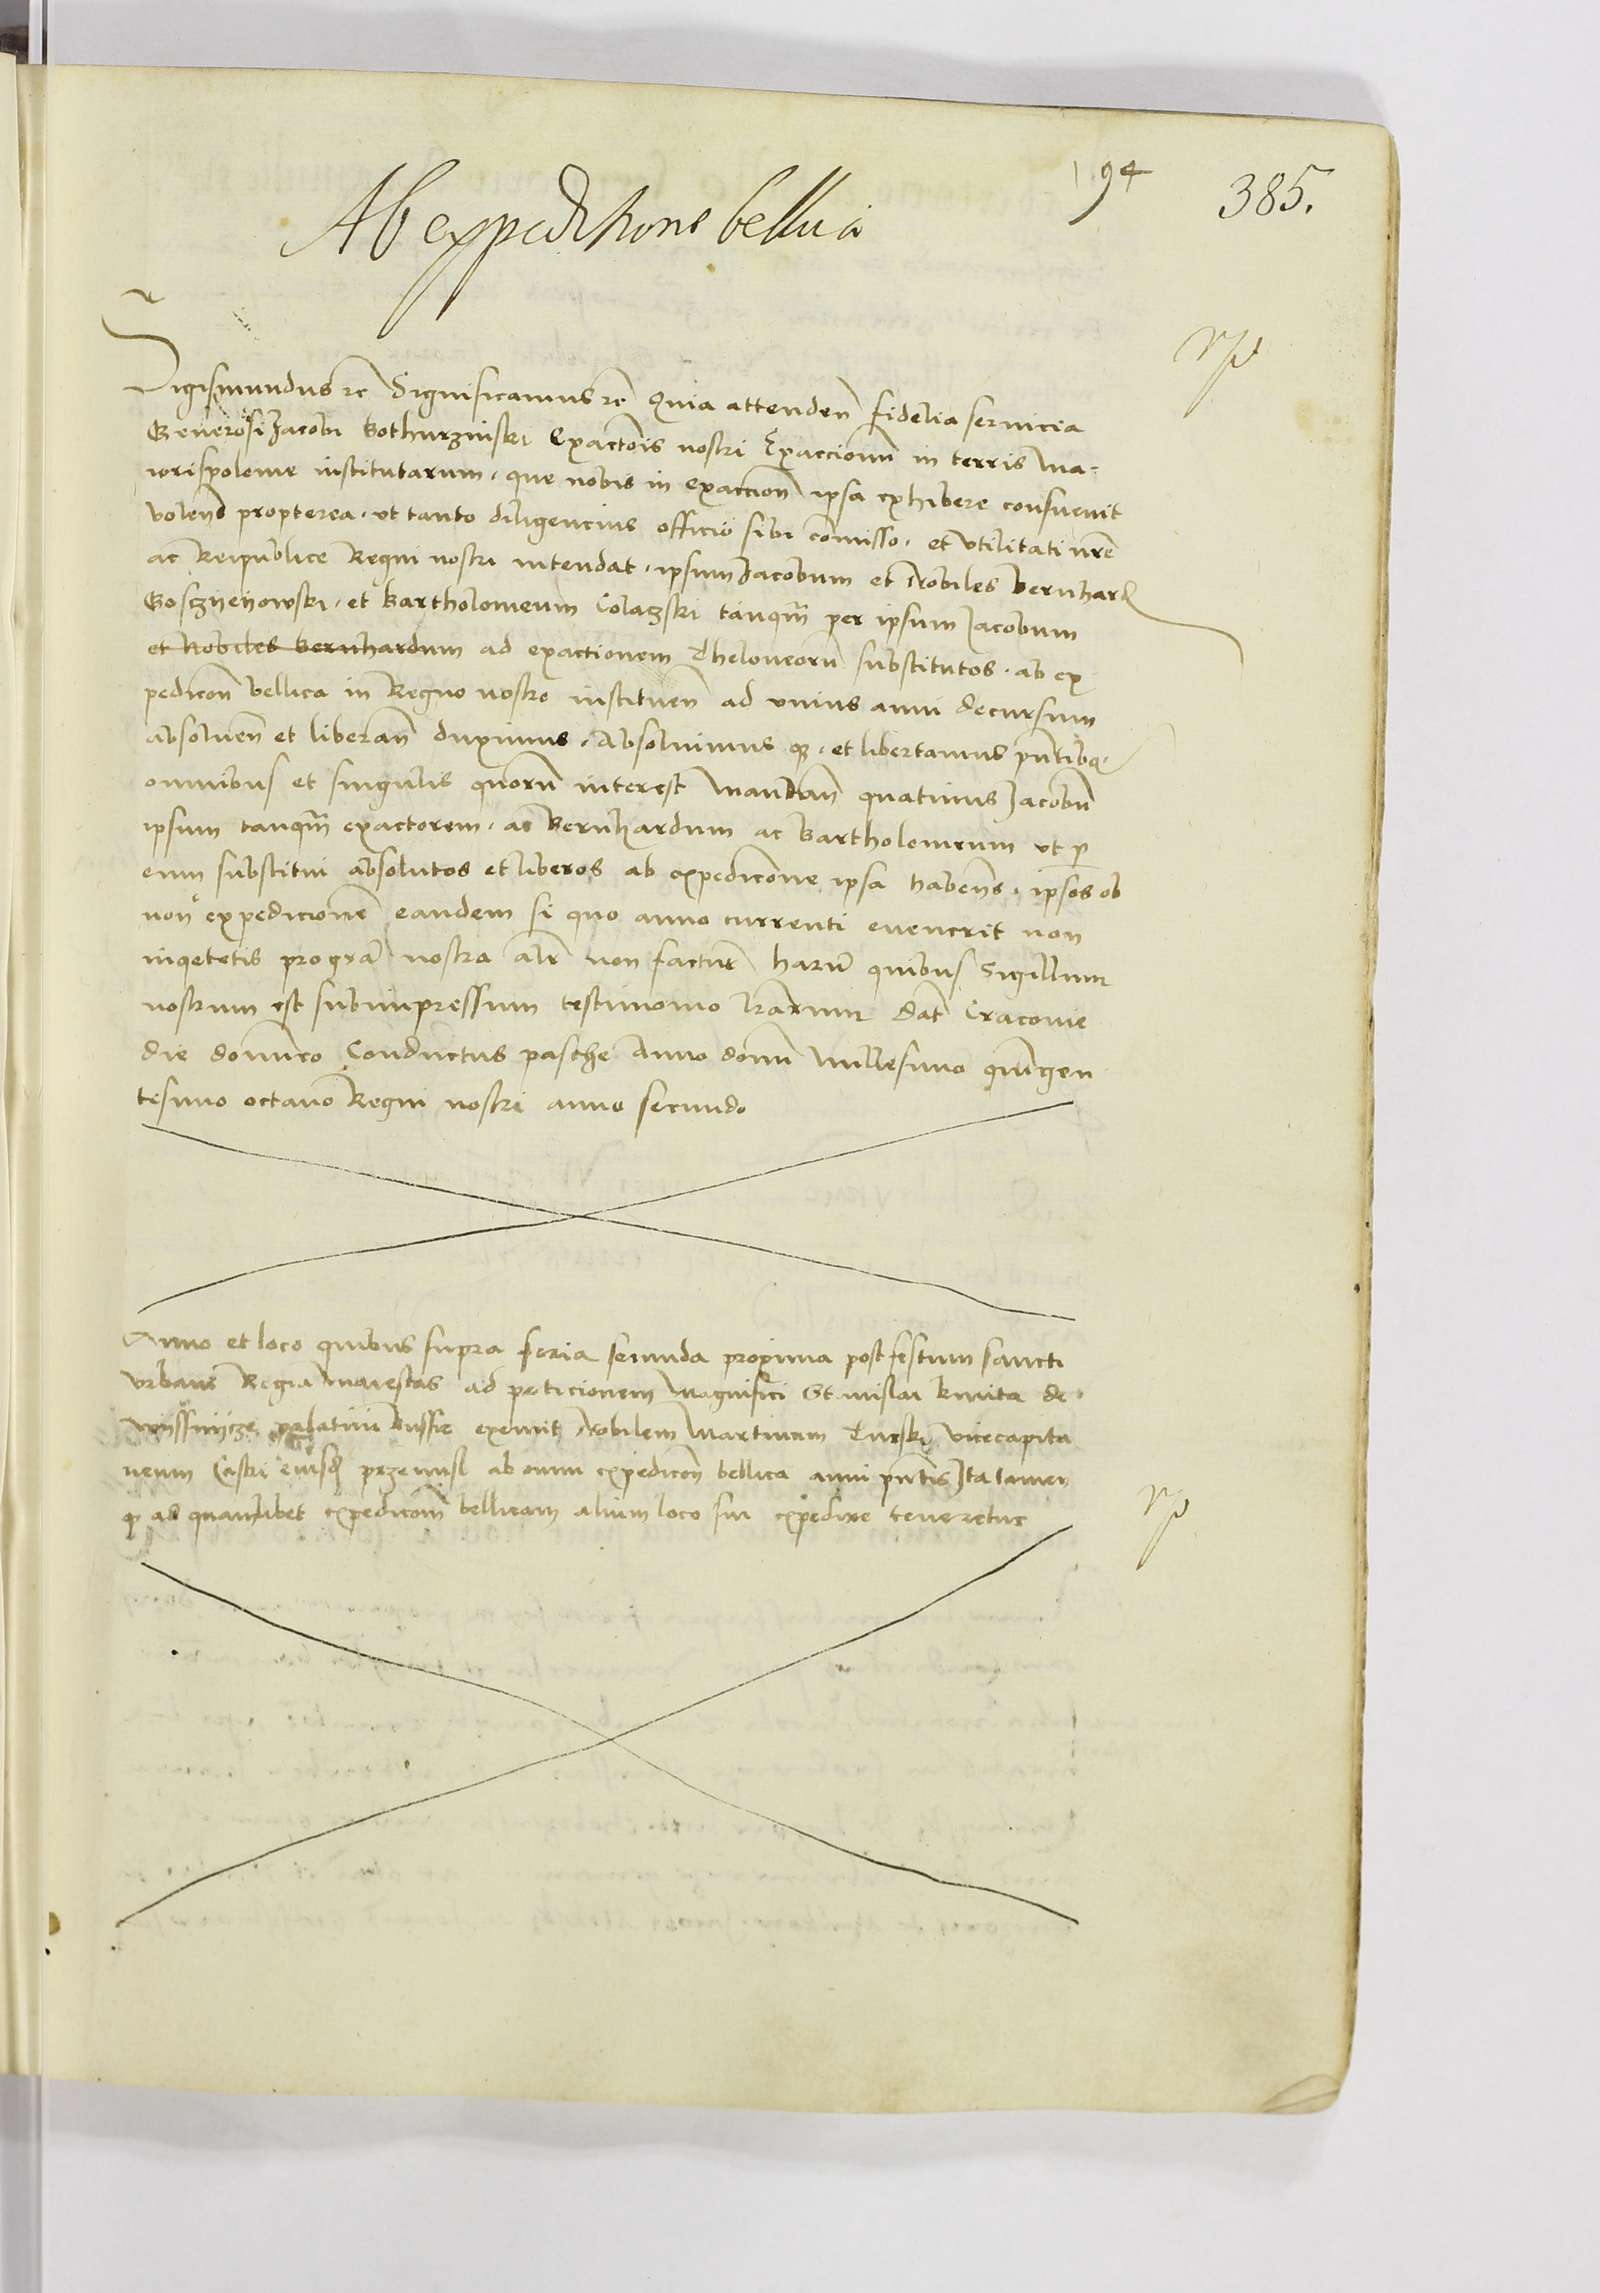 194 385.
Ab expeditione bellica
rp
Sigismundus rc Significamus rc Quia attenden fidelia servicia
Generosi Jacobi Bothurzinski Exactoris nostri Exaccionum in terris Ma-
iorispolonie institutarum, que nobis in exaccion ipsa exhibere consuevit
volend propterea, ut tanto diligencius officio sibi comisso, et utilitati nre
ac Reipublice Regni nostri intendat, ipsum Jacobum et Nobiles Bernhard
et Bartholomeum tanqm per ipsum Jacobum
et Nobiles Bernhardum ad exactionem Theloneorum substitutos, ab ex
pedicon bellica in Regno nostro instituen ad unius anni decursum
absoluen et liberan duximus, Absoluimus q, et libertamus pntibq,
omnibus et singulis quorum interest Mandan quatinus Jacobum
ipsum tanqm exactorem, ac Bernhardum ac Bartholomeum ut p
eum substitui absolutos et liberos ab expedicione ipsa habens, ipsos ob
non expedicionem eandem si quo anno currenti evenerit non
inqetetis pro gra nostra alr non factur harum quibus Sigillum
nostrum est subimpressum testimonio lrarum dat Cracovie
die dominico Conductus pasche Anno domi Millesimo quingen
tesimo octavo Regni nostri anno secundo
Anno et loco quibus supra feria secunda proxima post festum sancti
Urbani Regia Maiestas ad peticionem Magnifici Stanislai kmita de
palatini Russie exemit Nobilem Martinum Turski vicecapita
neum Castri eiusd przemisl ab omni expedicon bellica anni pntis Ita tamen
q ad quamlibet expedicom bellicam alium loco sui expedire teneretur
rp